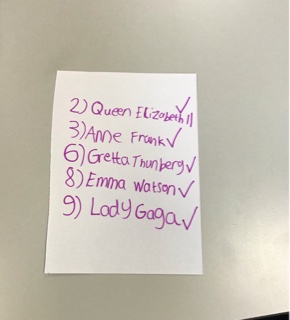 2) Queen Elizabeth II ✓
3) Anne Frank ✓
6) Gretta Thunberg ✓
8) Emma Watson ✓
9) Lady Gaga ✓